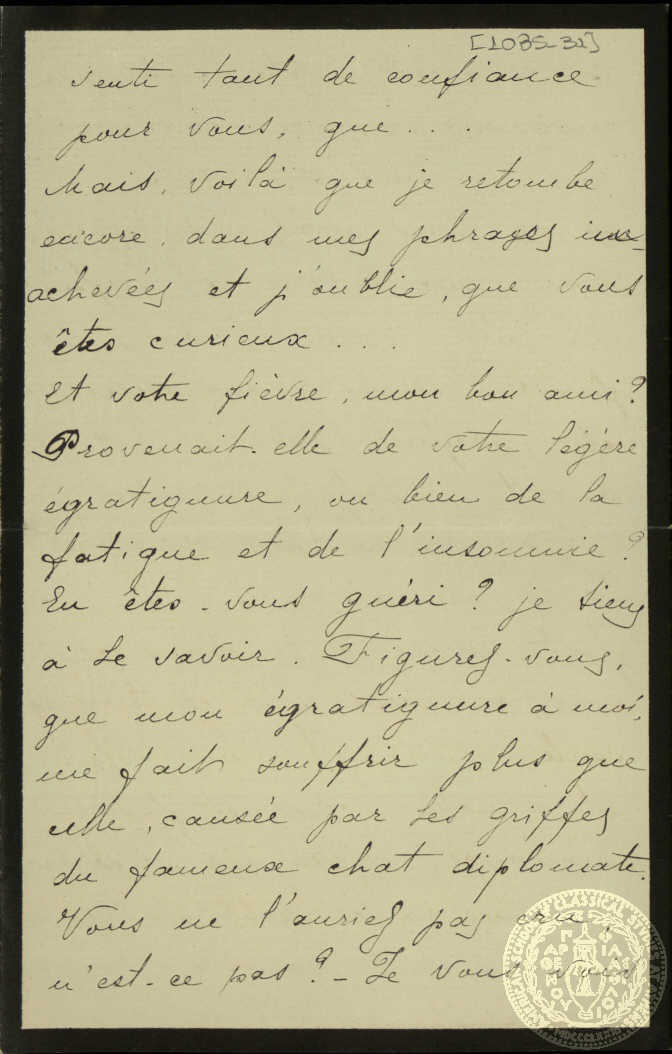 [1035-31]
senti tant de confiance
pour vous, que . . .
Mais, voilà que je retombe
encore, dans mes phrases in-
achevées et j'oublie, que vous
êtes curieux . . .
Et votre fièvre, mon bon ami ?
Provenait-elle de votre légère
égratignure, ou bien de la
fatigue et de l'insomnie ?
En êtes-vous guéri ? je tiens
à le savoir. Figurez-vous,
que mon égratignure à moi,
me fait souffrir plus que
celle, causée par les griffes
du fameux chat diplomate.
Vous ne l'auriez pas cru,
n'est-ce pas ? – Je vous vois
AMERICAN SCHOOL OF CLASSICAL STUDIES AT ATHENS